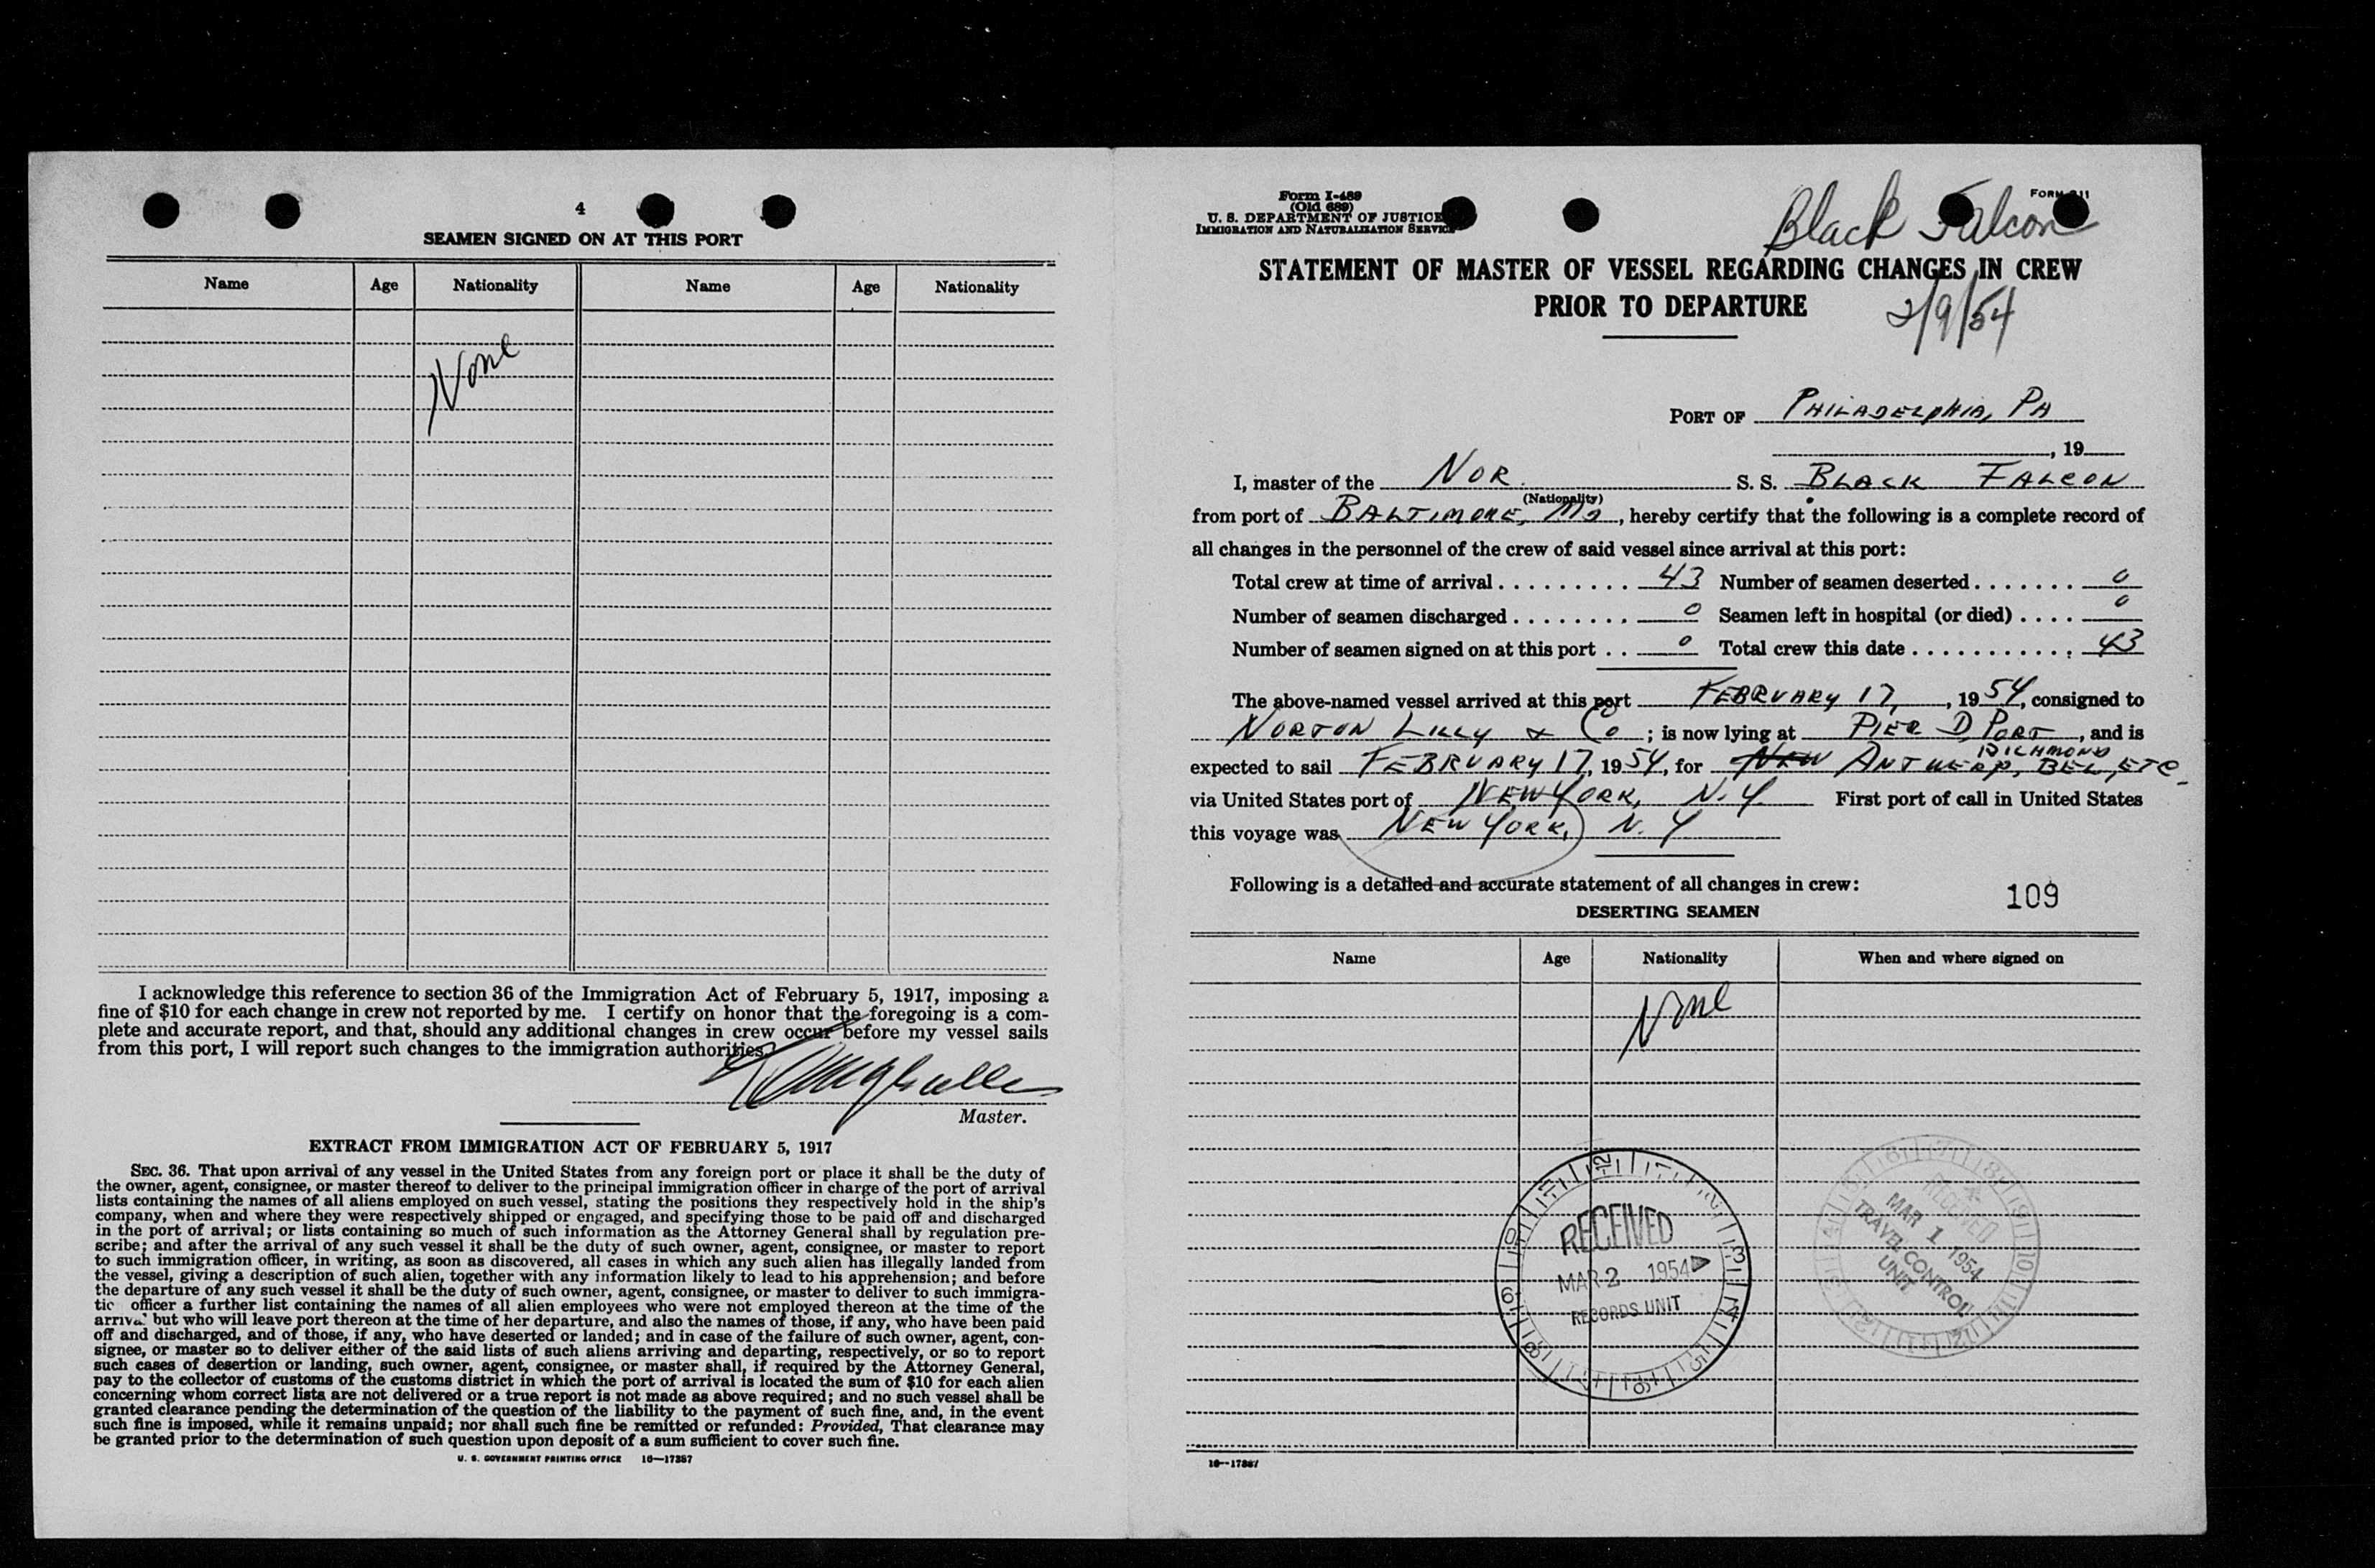 4
SEAMEN SIGNED ON AT THIS PORT
Name Age Nationality Name Age Nationality
None
I acknowledge this reference to section 36 of the Immigration Act of February 5, 1917, imposing a
fine of $10 for each change in crew not reported by me. I certify on honor that the foregoing is a com-
plete and accurate report, and that, should any additional changes in crew occur before my vessel sails
from this port, I will report such changes to the immigration authorities.
Master.
EXTRACT FROM IMMIGRATION ACT OF FEBRUARY 5, 1917
SEC. 36. That upon arrival of any vessel in the United States from any foreign port or place it shall be the duty of
the owner, agent, consignee, or master thereof to deliver to the principal immigration officer in charge of the port of arrival
lists containing the names of all aliens employed on such vessel, stating the positions they respectively hold in the ship's
company, when and where they were respectively shipped or engaged, and specifying those to be paid off and discharged
in the port of arrival; or lists containing so much of such information as the Attorney General shall by regulation pre-
scribe; and after the arrival of any such vessel it shall be the duty of such owner, agent, consignee, or master to report
to such immigration officer, in writing, as soon as discovered, all cases in which any such alien has illegally landed from
the vessel, giving a description of such alien, together with any information likely to lead to his apprehension; and before
the departure of any such vessel it shall be the duty of such owner, agent, consignee, or master to deliver to such immigra-
tic officer a further list containing the names of all alien employees who were not employed thereon at the time of the
arriva' but who will leave port thereon at the time of her departure, and also the names of those, if any, who have been paid
off and discharged, and of those, if any, who have deserted or landed; and in case of the failure of such owner, agent, con-
signee, or master so to deliver either of the said lists of such aliens arriving and departing, respectively, or so to report
such cases of desertion or landing, such owner, agent, consignee, or master shall, if required by the Attorney General,
pay to the collector of customs of the customs district in which the port of arrival is located the sum of $10 for each alien
concerning whom correct lists are not delivered or a true report is not made as above required; and no such vessel shall be
granted clearance pending the determination of the question of the liability to the payment of such fine, and, in the event
such fine is imposed, while it remains unpaid; nor shall such fine be remitted or refunded: Provided, That clearance may
be granted prior to the determination of such question upon deposit of a sum sufficient to cover such fine.
U. S. GOVERNMENT PRINTING OFFICE 16—17357
Form I-489
(Old 689)
U. S. DEPARTMENT OF JUSTICE
IMMIGRATION AND NATURALIZATION SERVICE
FORM
Black Falcon
STATEMENT OF MASTER OF VESSEL REGARDING CHANGES IN CREW
PRIOR TO DEPARTURE
2/9/54
PORT OF PHILADELPHIA, PA
, 19
I, master of the NOR. S. S. BLACK FALCON
(Nationality)
from port of BALTIMORE, MD, hereby certify that the following is a complete record of
all changes in the personnel of the crew of said vessel since arrival at this port:
Total crew at time of arrival . . . . . . . . . . 43 Number of seamen deserted . . . . . . . 0
Number of seamen discharged . . . . . . . . 0 Seamen left in hospital (or died) . . . . 0
Number of seamen signed on at this port . . 0 Total crew this date . . . . . . . . . . . . 43
The above-named vessel arrived at this port FEBRUARY 17, 1954, consigned to
NORTON LILLY & Co; is now lying at PIER D PORT, and is
RICHMOND
expected to sail FEBRUARY 17, 1954, for NEW ANTWERP, BEL, ETC
via United States port of NEW YORK, N.Y. First port of call in United States
this voyage was NEW YORK, N.Y
Following is a detailed and accurate statement of all changes in crew:
109
DESERTING SEAMEN
Name Age Nationality When and where signed on
None
RECEIVED
MAR 2 1954
RECORDS UNIT
RECEIVED
MAR 1 1954
TRAVEL CONTROL
UNIT